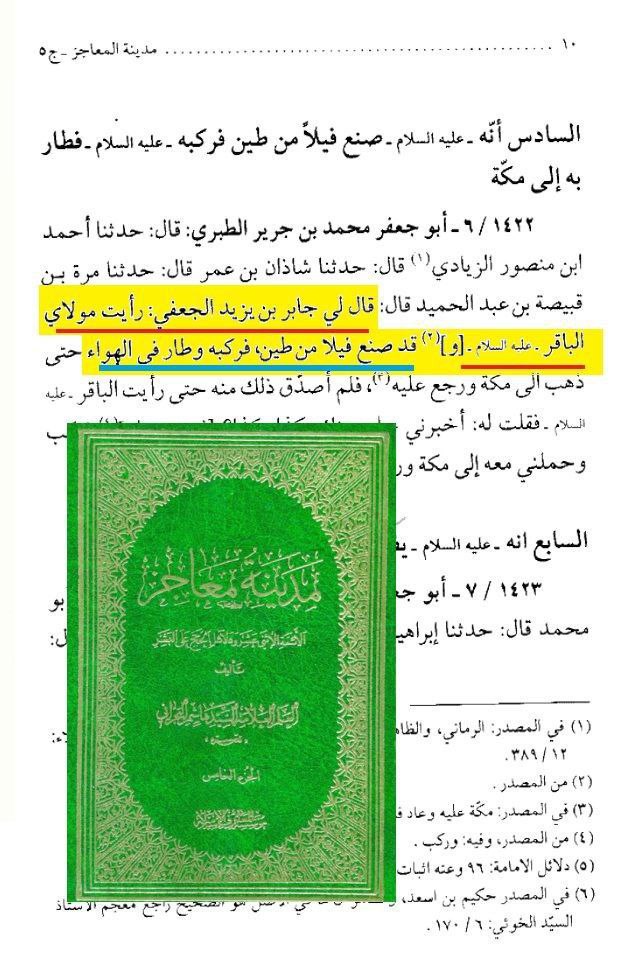 ١٠ ................................................ مدينة المعاجز ـ ج٥
السادس أنّه ـ عليه السلام ـ صنع فيلاً من طين فركبه ـ عليه السلام ـ فطار
به إلى مكّة
١٤٢٢ / ٦ ـ أبو جعفر محمد بن جرير الطبري: قال: حدثنا أحمد
ابن منصور الزيادي(١) قال: حدثنا شاذان بن عمر قال: حدثنا مرة بن
قبيصة بن عبد الحميد قال: قال لي جابر بن يزيد الجعفي: رأيت مولاي
الباقر ـ عليه السلام ـ [و](٢) قد صنع فيلا من طين، فركبه وطار في الهواء حتى
ذهب الى مكة ورجع عليه(٣)، فلم أصدّق ذلك منه حتى رأيت الباقر ـ عليه
السلام ـ فقلت له: أخبرني
وحملني معه إلى مكة
السابع انه ـ عليه السلام ـ
١٤٢٣ / ٧ ـ أبو
محمد قال: حدثنا
مدينة معاجز
الأئمة الإثني عشر ودلائل الحجج على البشر
تأليف
السيد هاشم البحراني
الجزء الخامس
(١) في المصدر: الرماني،
١٢ / ٣٨٩ .
(٢) من المصدر .
(٣) في المصدر: مكة عليه وعاد
(٤) من المصدر، وفيه: وركب .
(٥) دلائل الامامة: ٩٦ وعنه اثبات
(٦) في المصدر حكيم بن اسعد، هو الصحيح راجع معجم الاستاذ
السيّد الخوئي: ٦ / ١٧٠ .